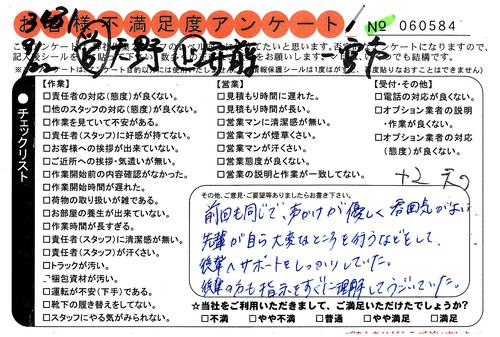 お客様不満足度アンケート!
№ 060584
チェックリスト
【作業】
□責任者の対応(態度)が良くない。
□他のスタッフの対応(態度)が良くない。
□作業を見ていて不安がある。
□責任者(スタッフ)に好感が持てない。
□お客様への挨拶が出来ていない。
□ご近所への挨拶・気遣いが無い。
□作業開始前の内容確認がなかった。
□作業開始時間が遅れた。
□荷物の取り扱いが雑である。
□お部屋の養生が出来ていない。
□作業時間が長すぎる。
□責任者(スタッフ)に清潔感が無い。
□責任者(スタッフ)が汗くさい。
□トラックが汚い。
□梱包資材が汚い。
□運転が不安(下手)である。
□靴下の履き替えをしてない。
□スタッフにやる気がみられない。
【営業】
□見積もり時間に遅れた。
□見積もり時間が長い。
□営業マンに清潔感が無い。
□営業マンが煙草くさい。
□営業マンが汗くさい。
□営業態度が良くない。
□営業の説明と作業が一致してない。
【受付・その他】
□電話の対応が良くない。
□オプション業者の説明
・作業が良くない。
□オプション業者の対応
(態度)が良くない。
その他、ご意見・ご要望等ありましたらお書き下さい。
前回も同じで、声かけが優しく雰囲気がよい
先輩が自ら大変なところを行うなどをして、
後輩へサポートをしっかりしていた。
後輩の方も指示をすぐに理解してうごいていた。
☆当社をご利用いただきまして、ご満足いただけたでしょうか?
□不満 □やや不満 □普通 □やや満足 □満足